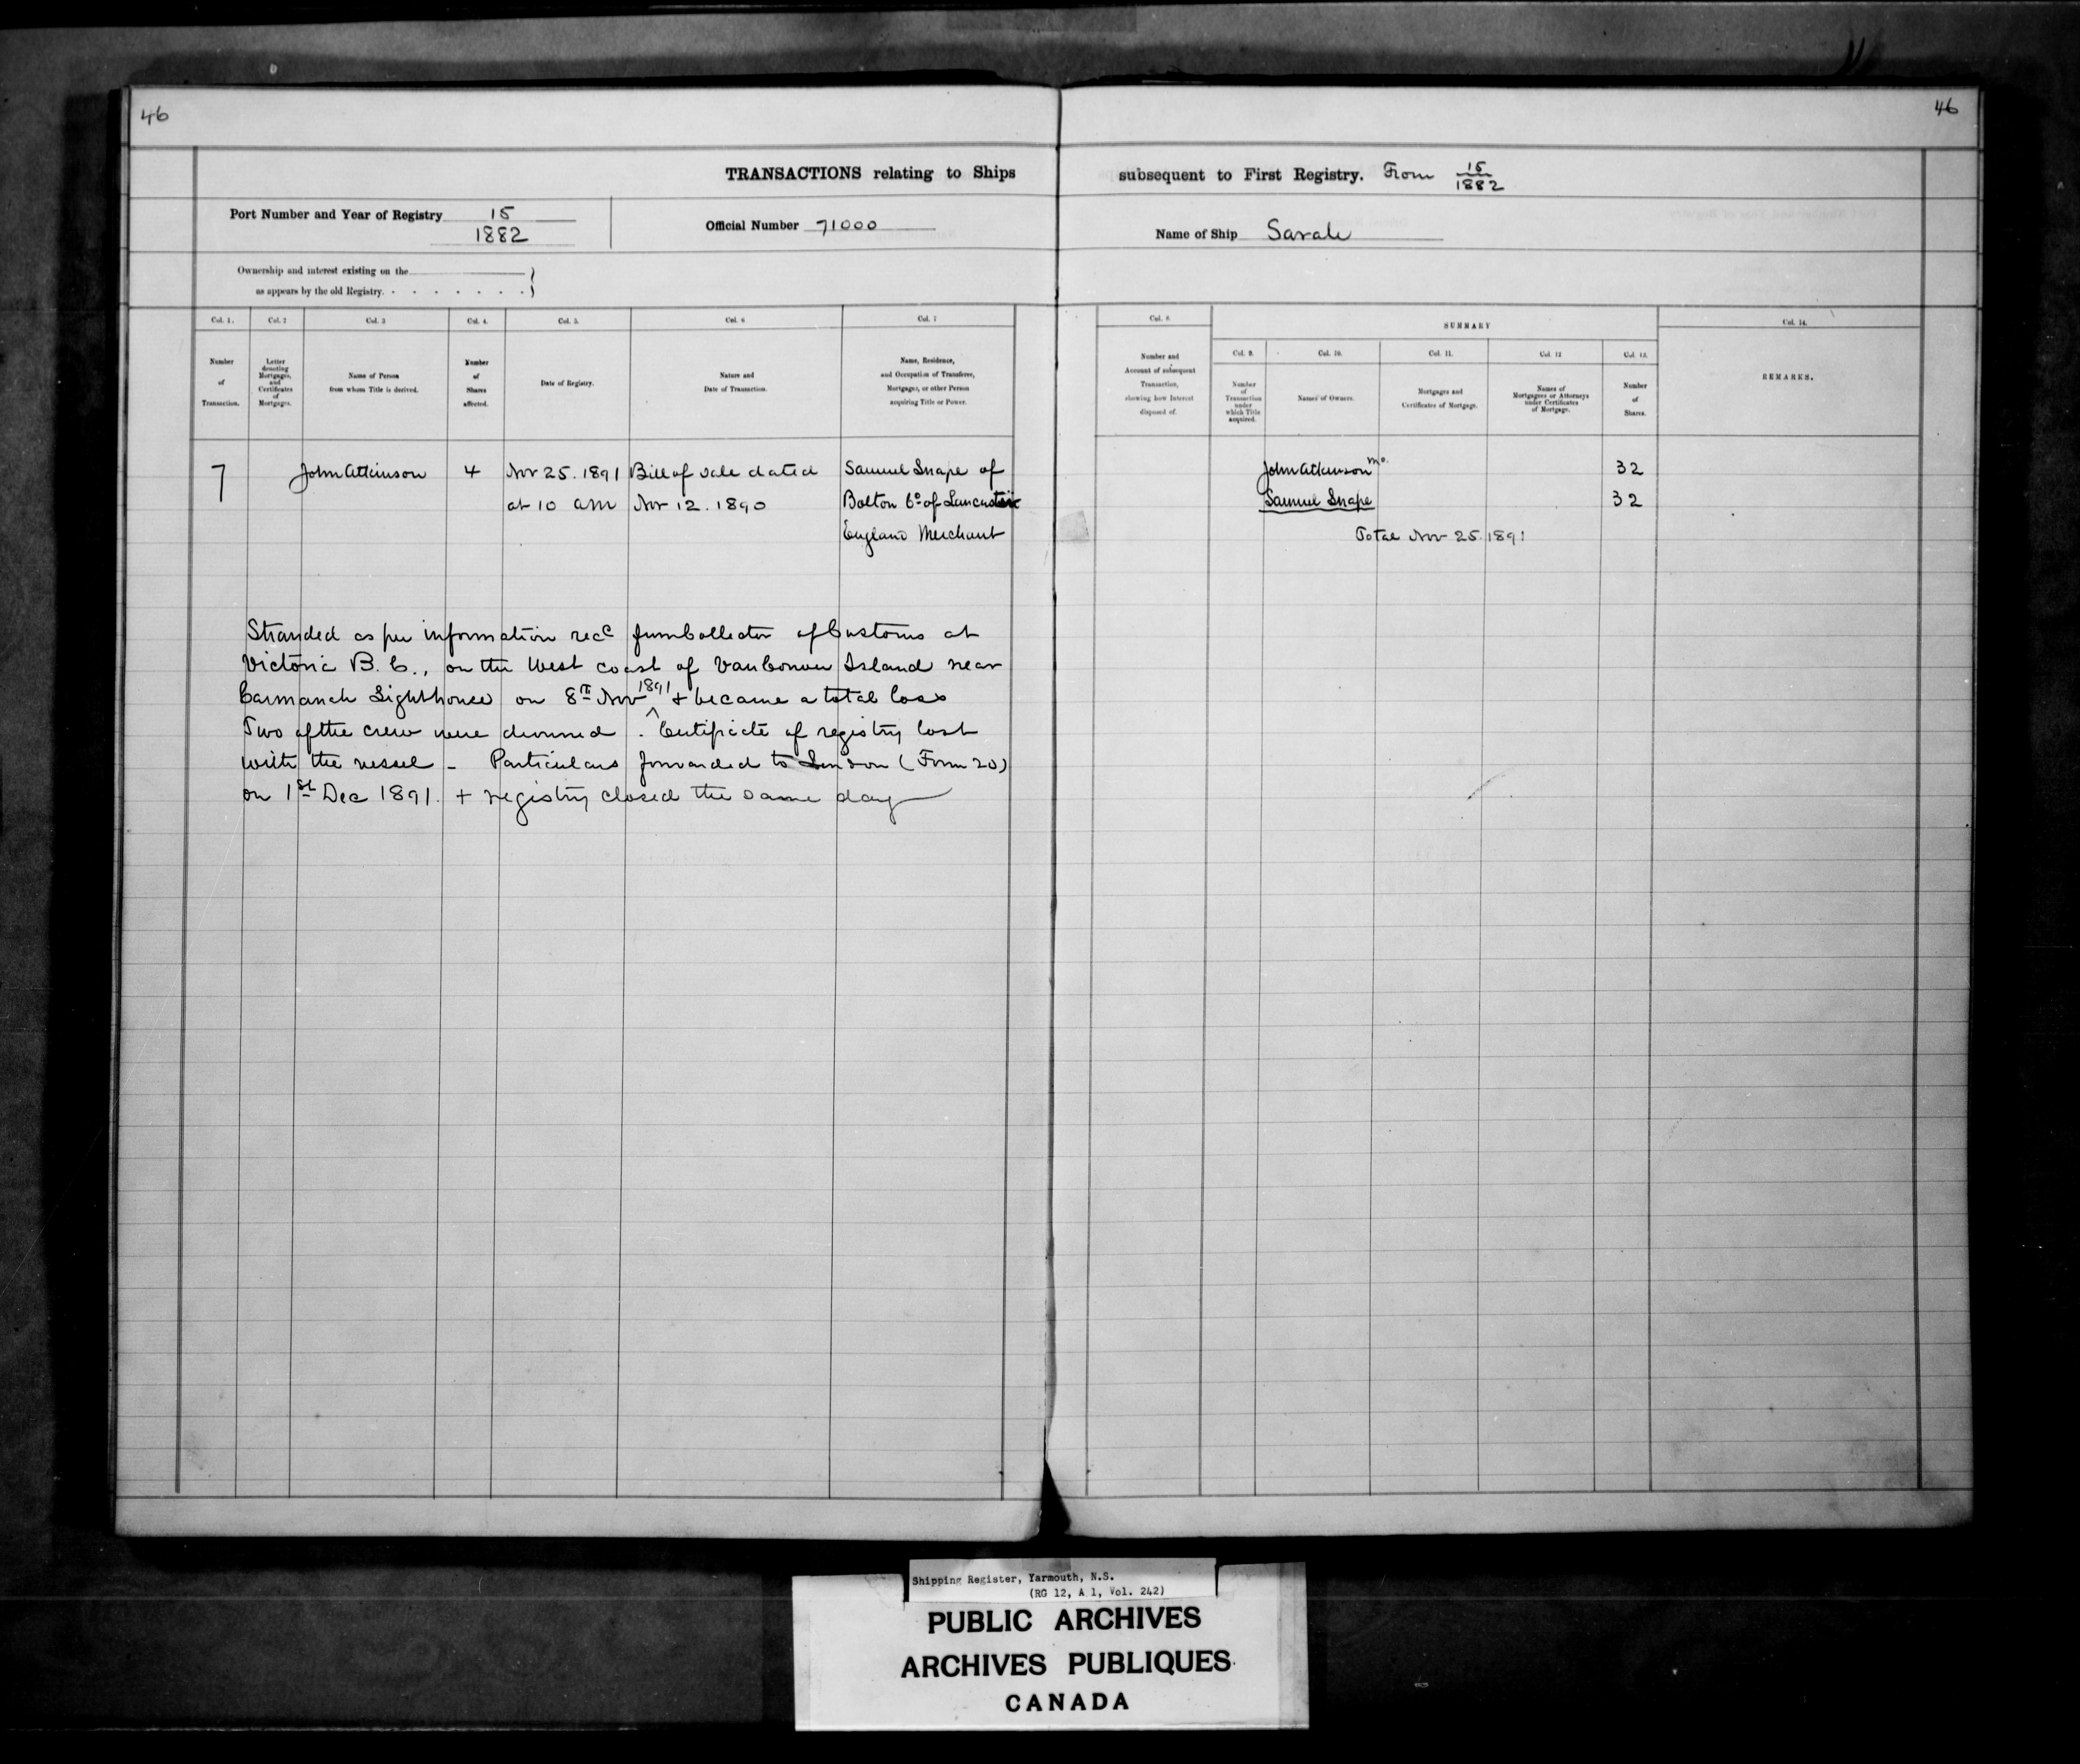 46
46
TRANSACTIONS relating to Ships subsequent to First Registry. From 15/1882
Port Number and Year of Registry 15/1882
Official Number 71000
Name of Ship Sarah
Ownership and interest existing on the
as appears by the old Registry.
Col. 1. Col. 2 Col. 3 Col. 4. Col. 5. Col. 6 Col. 7 Col. 8. SUMMARY Col. 14.
Col. 9. Col. 10. Col. 11. Col. 12 Col. 13.
Number of Transaction.
Letter denoting Mortgages, and Certificates of Mortgages.
Name of Person from whom Title is derived.
Number of Shares affected.
Date of Registry.
Nature and Date of Transaction.
Name, Residence, and Occupation of Transferee, Mortgagee, or other Person acquiring Title or Power.
Number and Account of subsequent Transaction, showing how Interest disposed of.
Number of Transaction under which Title acquired.
Names of Owners.
Mortgages and Certificates of Mortgage.
Names of Mortgagees or Attorneys under Certificates of Mortgage.
Number of Shares.
REMARKS.
7 John Atkinson 4 Nov 25. 1891 Bill of Sale dated Samuel Snape of John Atkinson mo. 32
at 10 am Nov 12. 1890 Bolton Co of Lancaster Samuel Snape 32
England Merchant Total Nov 25. 1891
Stranded as per information recd from Collector of Customs at
Victoria B.C., on the West coast of VanCouver Island near
Carmanah Lighthouse on 8th Nov 1891 + became a total loss
Two of the crew were drowned. Certificate of registry lost
with the vessel - Particulars forwarded to London (Form 20)
on 1st Dec 1891. + registry closed the same day
Shipping Register, Yarmouth, N.S.
(RG 12, A 1, Vol. 242)
PUBLIC ARCHIVES
ARCHIVES PUBLIQUES
CANADA